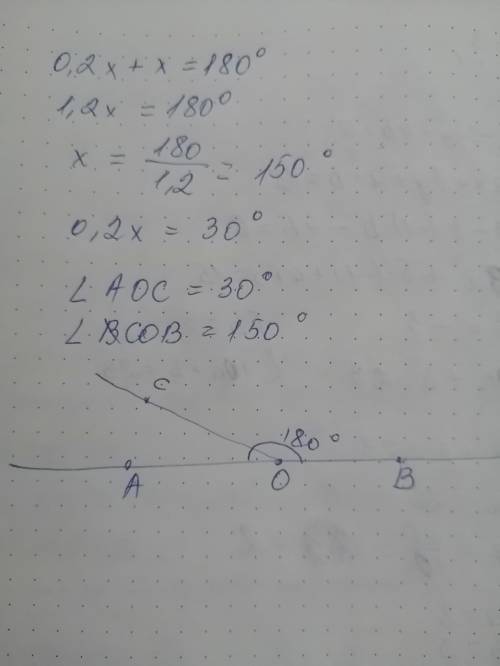 0,2x + x = 180°
1,2x = 180°
x = 180/1,2 = 150°
0,2x = 30°
∠AOC = 30°
∠COB = 150°
C
180°
A O B